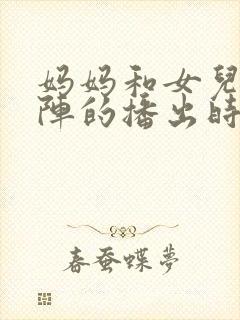 妈妈和女兒
陣的播出時
春蚕蝶夢